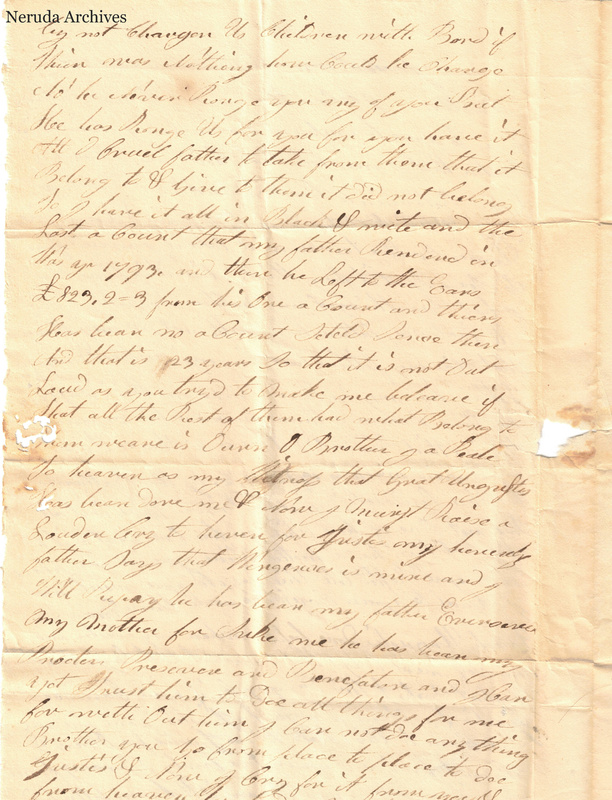 Neruda Archives
not Chargen Us Children with Bord if
thier was Nothing how Could he Charge
No he Never Ronge you my of you
He has Ronge Us for you for you have it
All O Cruel father to take from them that it
Belong to & Give to them it did not belong
So I have it all in Black & wite and the
Last a Count that my father Rendend in
Was yr 1793. and then he Left to the Ears
£823,2=3 from his One a Count and thiers
Has bean no a Count Seteld Sence then
And that is 23 years So that it is not Out
Lawd as you tryd to make me beleave if
that all the Rest of them had what Belong to
weare is Ourn O Brother
to heaven as my Witness that Great
Has bean done me & Now I Must Raise a
Louder Cry to heven for Justis my hevenly
father Says that Vengences is mine and I
Will Repay he has bean my father Ever
My Mother for Suke me he has bean my
Procter Preserver and Benefator and I Can
yet Trust him to Doe all things for me
for with Out him I Can not doe any thing
Brother you Go from place to place to Doe
Justis & Now I Cry for it from
from heaven